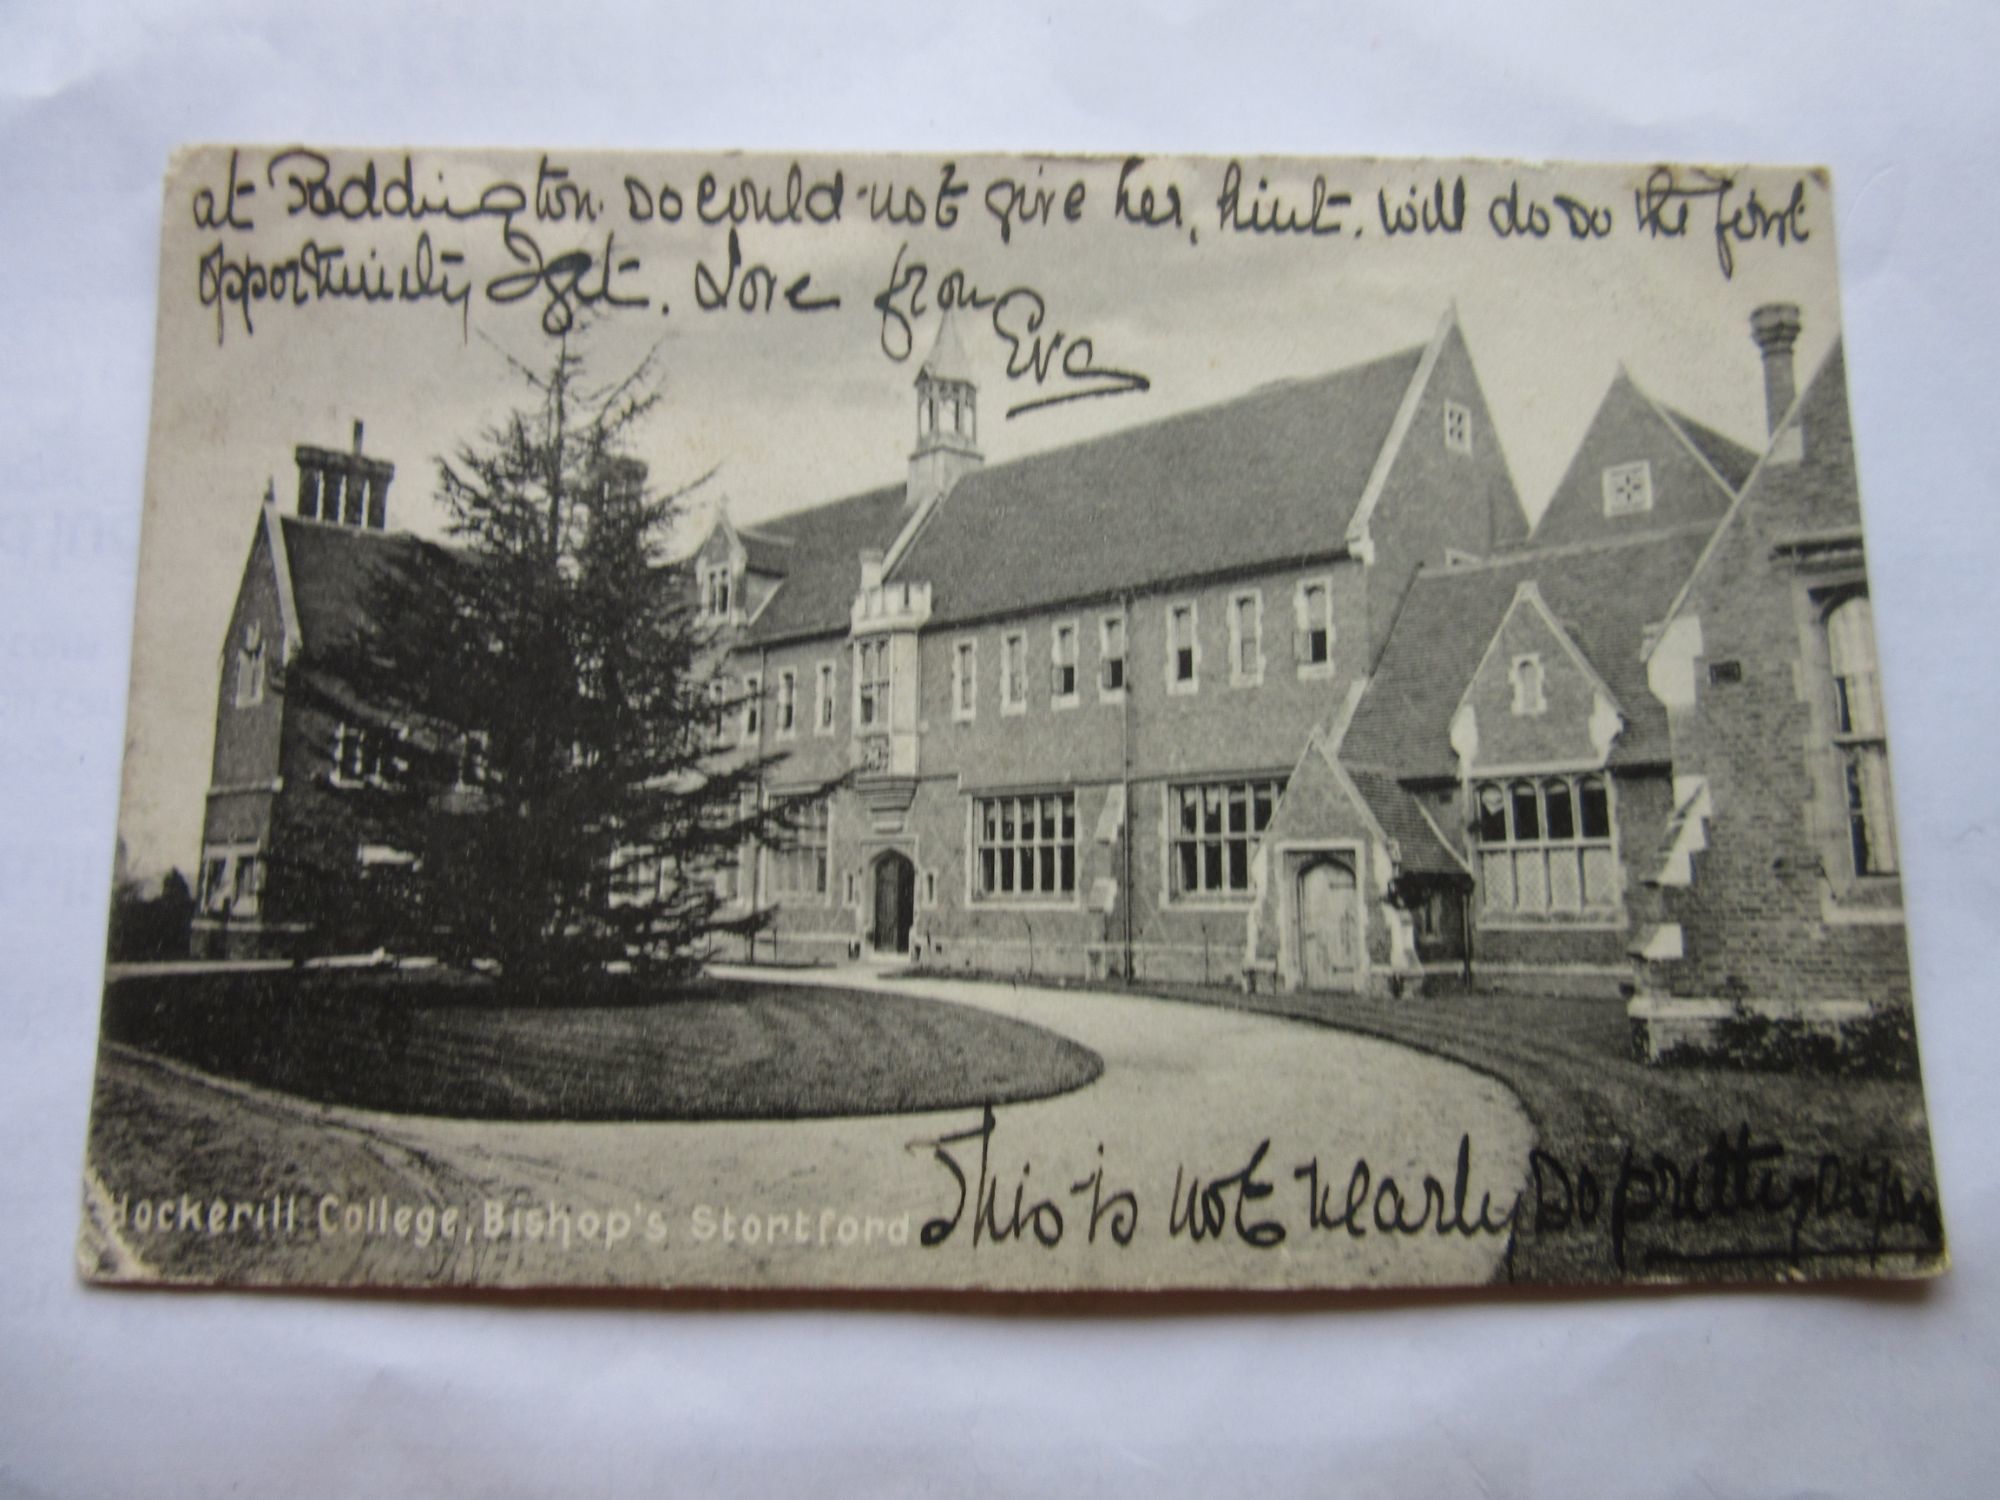 at Paddington. So could not give her, hint. will do so the first
opportunity I get. Love from
Eva
This is not nearly so pretty
Hockerill College, Bishop's Stortford